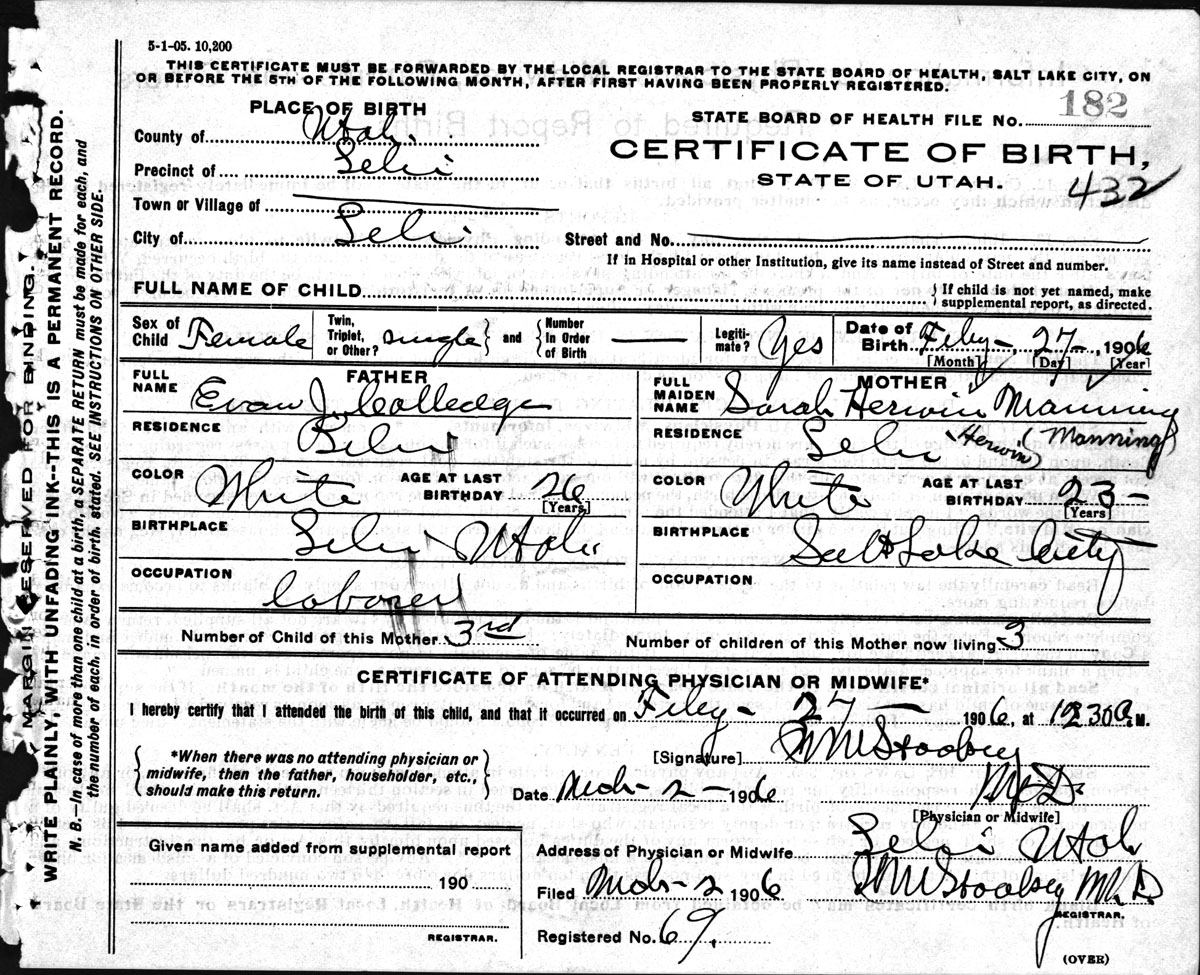 5-1-05. 10,200
THIS CERTIFICATE MUST BE FORWARDED BY THE LOCAL REGISTRAR TO THE STATE BOARD OF HEALTH, SALT LAKE CITY, ON
OR BEFORE THE 5TH OF THE FOLLOWING MONTH, AFTER FIRST HAVING BEEN PROPERLY REGISTERED.
PLACE OF BIRTH
STATE BOARD OF HEALTH FILE NO. 182
County of Utah
CERTIFICATE OF BIRTH,
Precinct of Lehi
STATE OF UTAH. 432
Town or Village of
City of Lehi
Street and No.
If in Hospital or other Institution, give its name instead of Street and number.
FULL NAME OF CHILD
If child is not yet named, make
supplemental report, as directed.
Sex of Child Female
Twin, Triplet, or Other? single and Number In Order of Birth
Legitimate? Yes
Date of Birth Feby - 27 -, 1906
[Month] [Day] [Year]
FATHER
FULL NAME Evan J. Colledge
RESIDENCE
COLOR White AGE AT LAST BIRTHDAY 26
[Years]
BIRTHPLACE Lehi Utah
OCCUPATION laborer
MOTHER
FULL MAIDEN NAME Sarah Herwin Manning
RESIDENCE Lehi (Herwin) (Manning)
COLOR White AGE AT LAST BIRTHDAY
[Years]
BIRTHPLACE Salt Lake City
OCCUPATION
Number of Child of this Mother 3rd
Number of children of this Mother now living 3
CERTIFICATE OF ATTENDING PHYSICIAN OR MIDWIFE*
I hereby certify that I attended the birth of this child, and that it occurred on Feby - 27 - 1906, at 12 30 a. M.
*When there was no attending physician or
midwife, then the father, householder, etc.,
should make this return.
[Signature]
M.D.
Date Mch - 2 - 1906
[Physician or Midwife]
Given name added from supplemental report
190
REGISTRAR.
Address of Physician or Midwife Lehi Utah
Filed Mch - 2 1906 M.D.
REGISTRAR.
Registered No. 69.
(OVER)
MARGIN RESERVED FOR BINDING.
WRITE PLAINLY, WITH UNFADING INK--THIS IS A PERMANENT RECORD.
N. B.—In case of more than one child at a birth, a SEPARATE RETURN must be made for each, and
the number of each, in order of birth, stated. SEE INSTRUCTIONS ON OTHER SIDE.